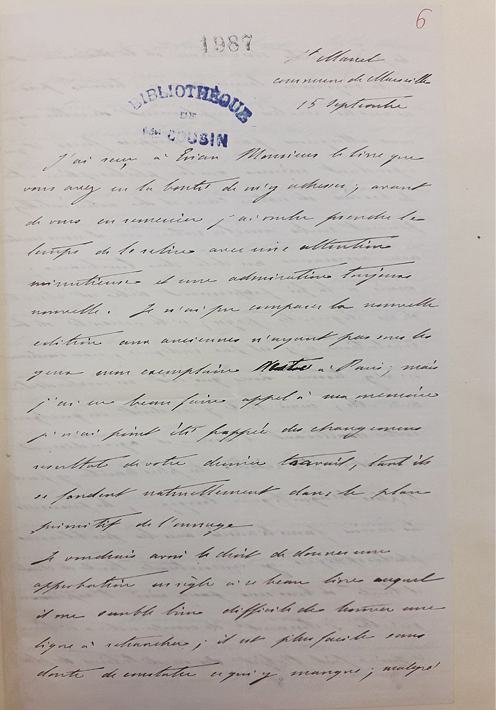 6
1987
St Marcel
commune de Marseille
15 Septembre
BIBLIOTHÈQUE
DE
COUSIN
J'ai reçu à Evian Monsieur le livre que
vous avez eu la bonté de m'y adresser; avant
de vous en remercier j'ai voulu prendre le
temps de le relire avec une attention
minutieuse et une admiration toujours
nouvelle. Je n'ai pu comparer la nouvelle
édition aux anciennes n'ayant pas sous les
yeux mon exemplaire à Paris; mais
j'ai eu beau faire appel à ma mémoire
je n'ai point été frappée des changemens
resultats de votre dernier travail, tant ils
se fondent naturellement dans le plan
primitif de l'ouvrage
Je voudrais avoir le droit de donner une
approbation en règle à ce beau livre auquel
il me semble bien difficile de trouver une
ligne à retrancher; il est plus facile sans
doute de constater ce qui y manque; malgré